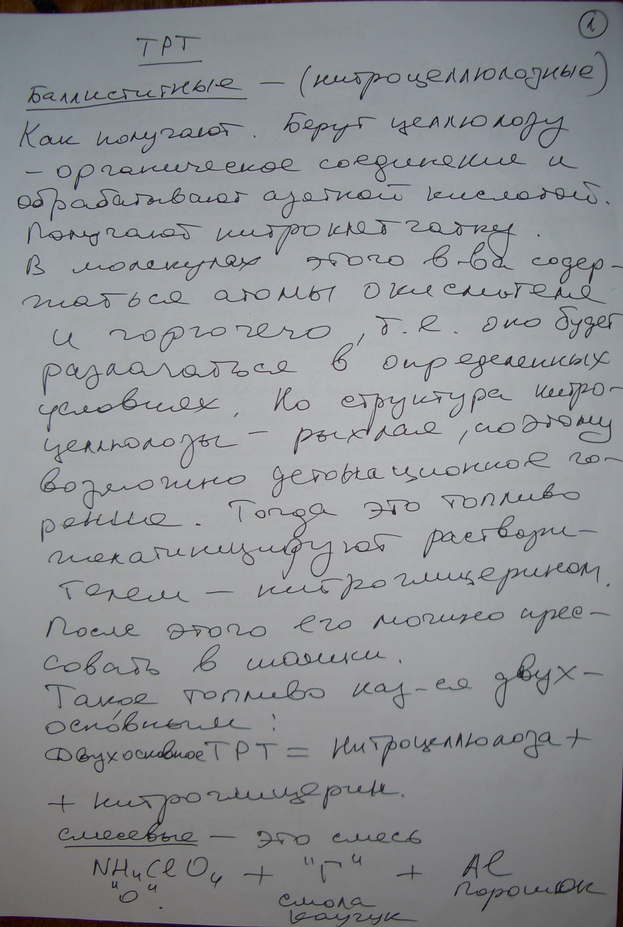 1
ТРТ
Баллиститные – (нитроцеллюлозные)
Как получают. Берут целлюлозу
– органическое соединение и
обрабатывают азотной кислотой.
Получают нитроклетчатку.
В молекулах этого в-ва содер-
жаться атомы окислителя
и горючего, т.е. оно будет
разлагаться в определенных
условиях. Но структура нитро-
целлюлозы – рыхлая, поэтому
возможно детонационное го-
рение. Тогда это топливо
желатиницифуют раствори-
телем – нитроглицерином.
После этого его можно прес-
совать в шашки.
Такое топливо наз-ся двух-
осно́вным:
Двухосновное ТРТ = нитроцеллюлоза +
+ нитроглицерин.
Смесевые – это смесь
NH4ClO4 + "Г" + Al
"О" смола порошок
каучук